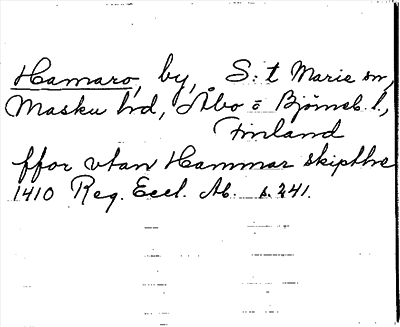 Hamaro, by, S:t Marie sn,
Masku hrd, Åbo o Björneb. l.,
Finland
ffor vtan Hammar skipthre
1410 Reg. Eccl. Ab. s. 241.